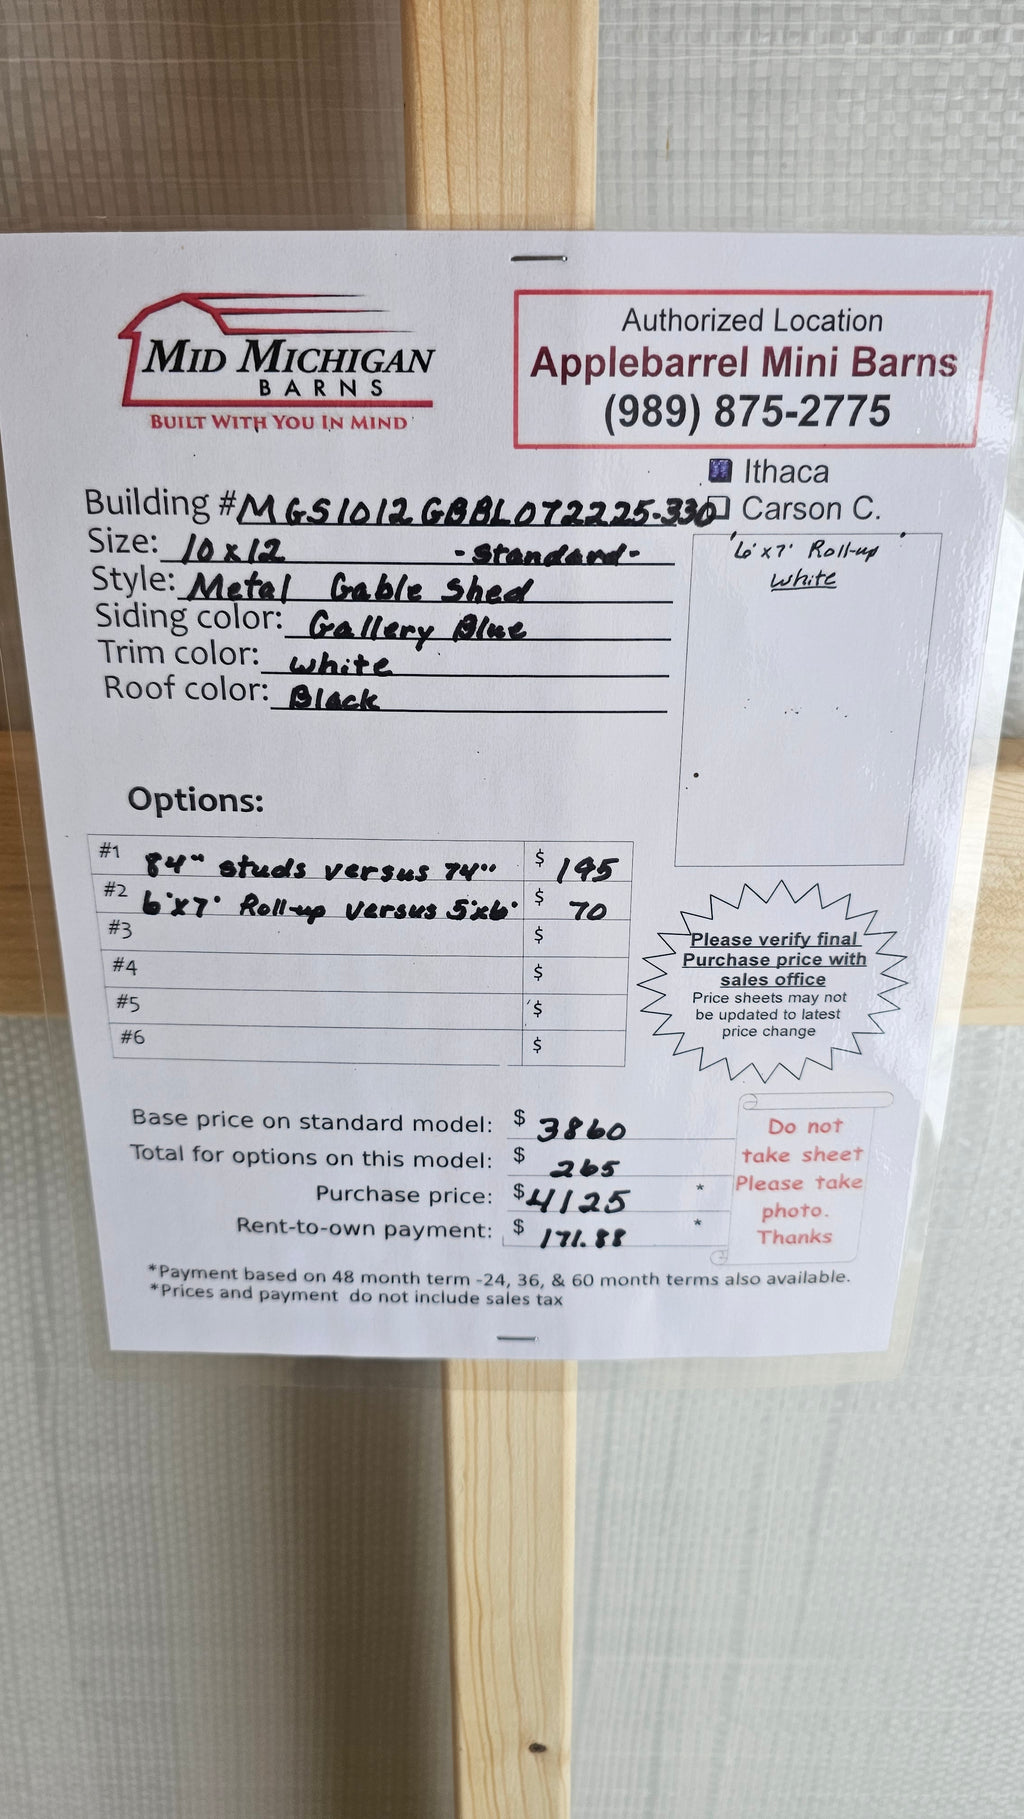 MID MICHIGAN
BARNS
BUILT WITH YOU IN MIND
Authorized Location
Applebarrel Mini Barns
(989) 875-2775
Ithaca
Carson C.
Building #MGS1012GBBL072225-330
Size: 10x12 -Standard-
Style: Metal Gable Shed
Siding color: Gallery Blue
Trim color: white
Roof color: Black
6'x7' Roll-up
white
Options:
#1 84" studs versus 74" $ 195
#2 6'x7' Roll-up versus 5'x6' $ 70
#3 $
#4 $
#5 $
#6 $
Please verify final
Purchase price with
sales office
Price sheets may not
be updated to latest
price change
Base price on standard model: $ 3860
Total for options on this model: $ 265
Purchase price: $ 4125 *
Rent-to-own payment: $ 171.88 *
Do not
take sheet
Please take
photo.
Thanks
*Payment based on 48 month term -24, 36, & 60 month terms also available.
*Prices and payment do not include sales tax